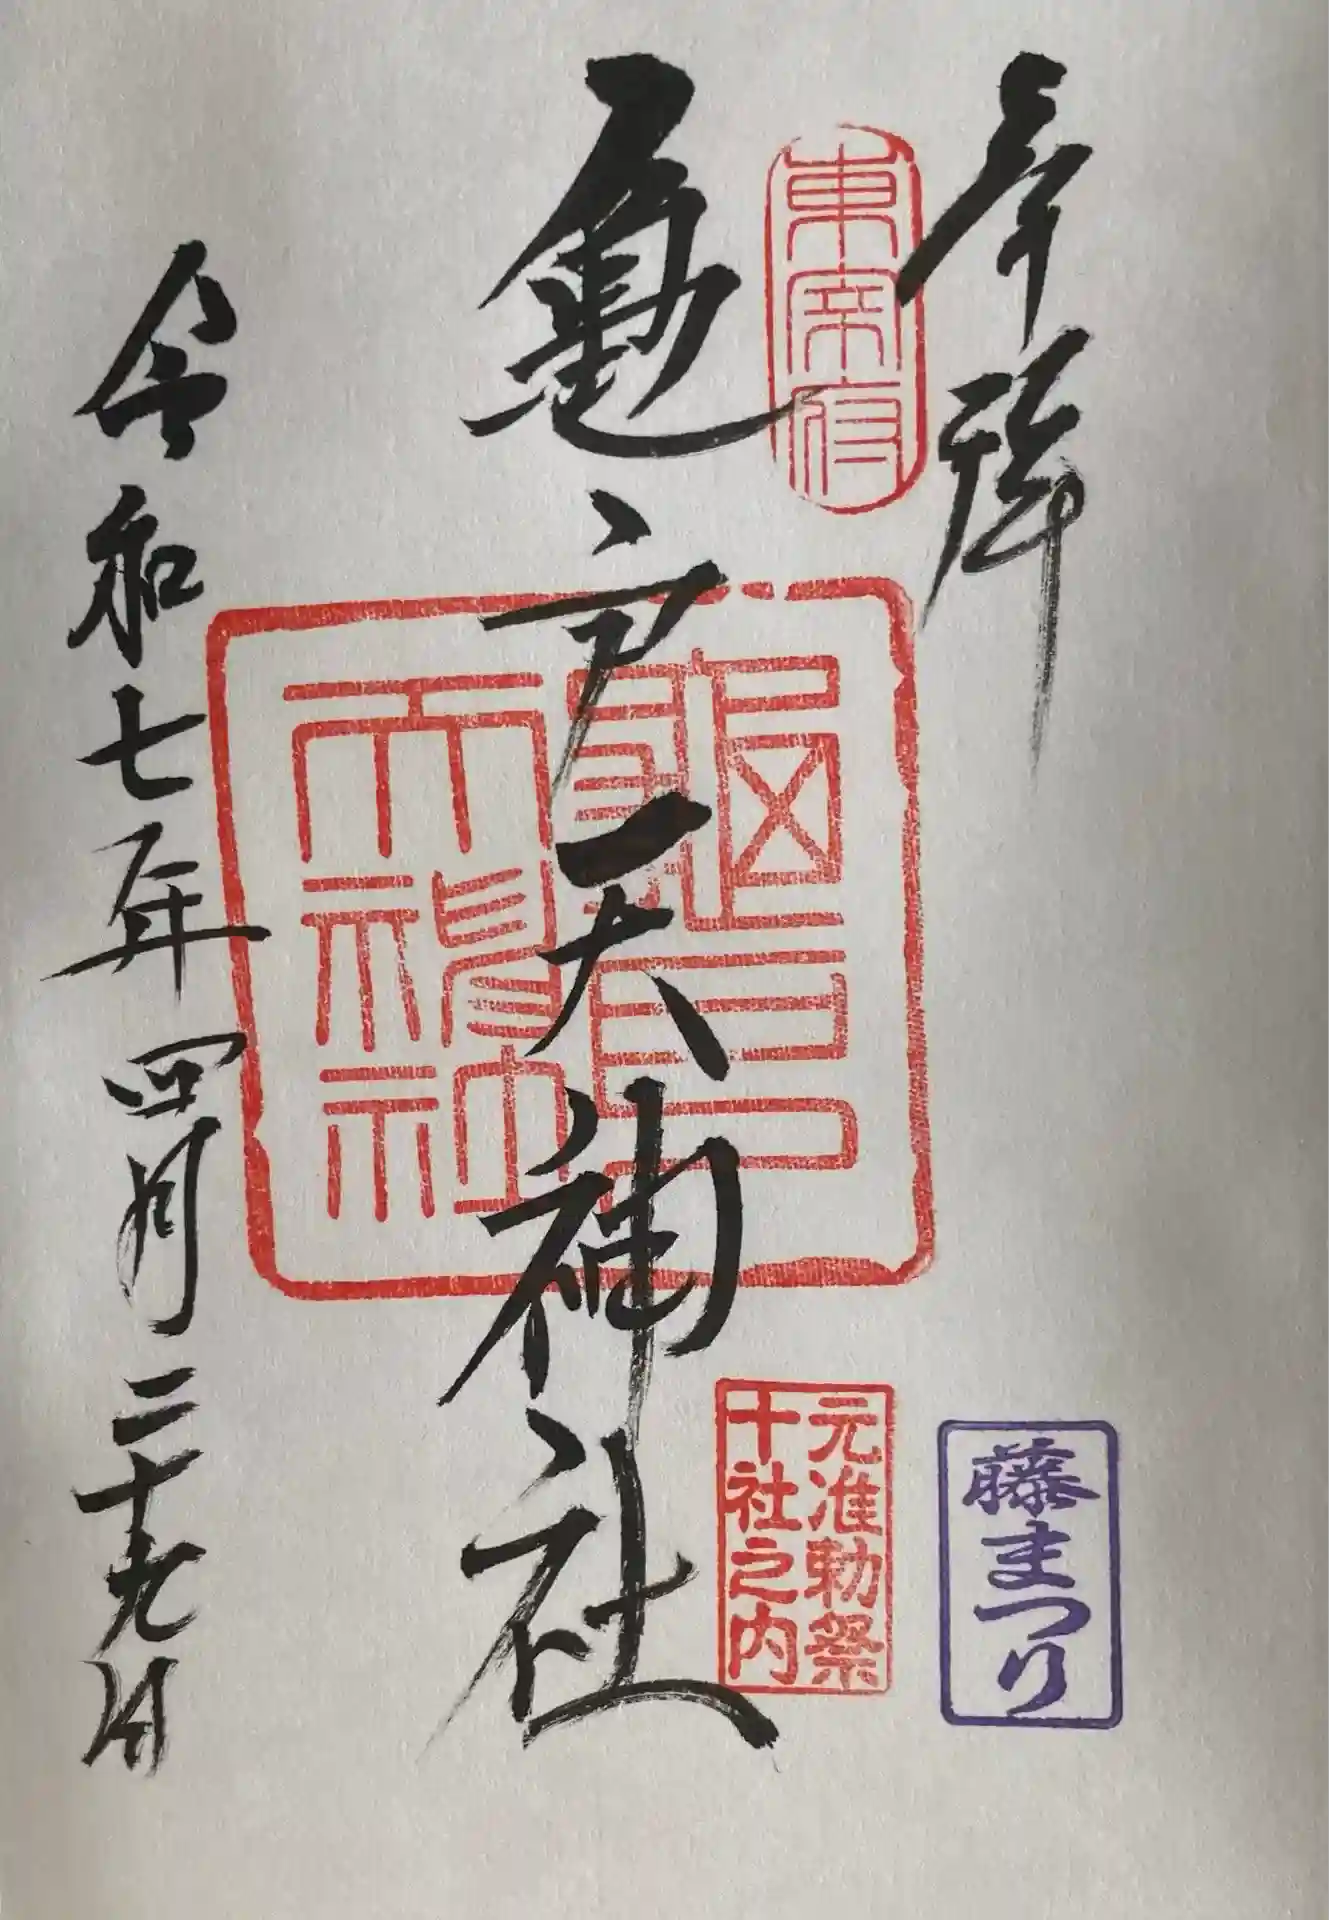 奉拝
東宰府
亀戸天神社
亀戸
天神社
元准勅祭
十社之内
藤まつり
令和七年四月二十九日